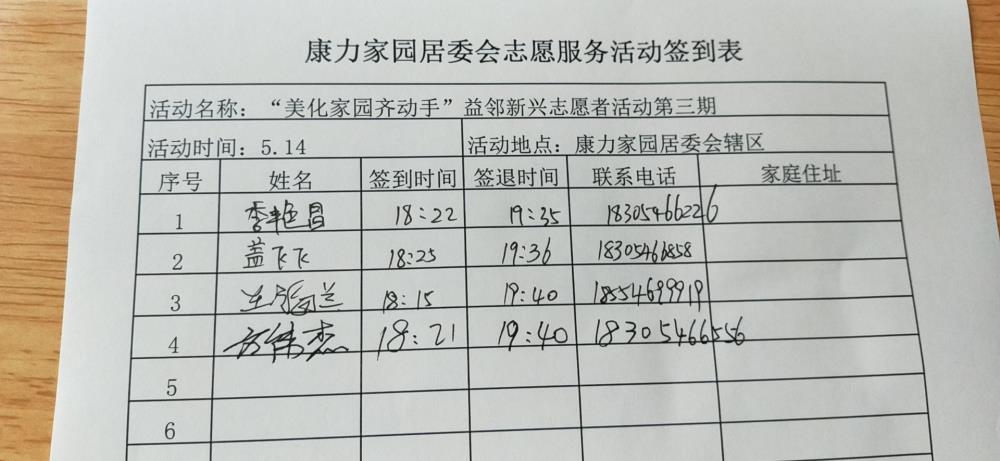 康力家园居委会志愿服务活动签到表
活动名称：“美化家园齐动手”益邻新兴志愿者活动第三期
活动时间：5.14 活动地点：康力家园居委会辖区
序号 姓名 签到时间 签退时间 联系电话 家庭住址
1 李艳昌 18:22 19:35 18305466226
2 盖飞飞 18:25 19:36 18305466858
3 兰 18:15 19:40 18554699919
4 伟杰 18:21 19:40 18305466556
5
6